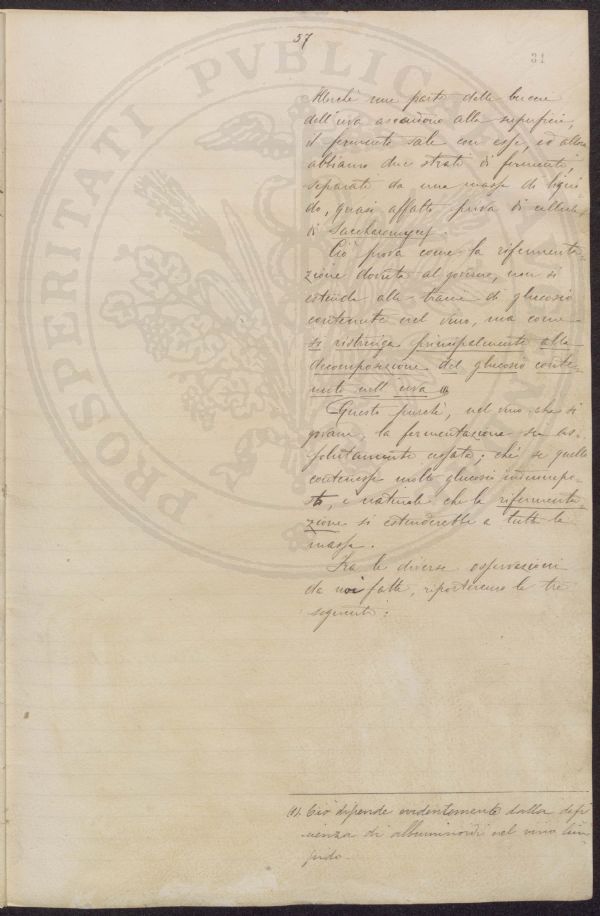 37
31
PROSPERITATI PUBLICAE
Perchè una parte delle bucce
dell'uva ascendono alla superficie,
il fermento sale con esse, ed allora
abbiamo due strati di fermenti,
separati da una massa di liqui
do, quasi affatto priva di cellule
di Saccharomyces.
Ciò prova come la rifermenta
zione dovuta al governo, non si
estenda alle traccie di glucosio
contenute nel vino, ma come
si ristringa principalmente alla
decomposizione del glucosio conte-
nuto nell'uva (1)
Questo purchè, nel vino che si
governa, la fermentazione sia as-
solutamente cessata; chè se quello
contenesse molto glucosio indecompo-
sto, è naturale che la rifermenta
zione si estenderebbe a tutta la
massa.
Fra le diverse osservazioni
da noi fatte, riporteremo le tre
seguenti:
(1) Ciò dipende evidentemente dalla defi
cienza di albuminoidi nel vino lim
pido.